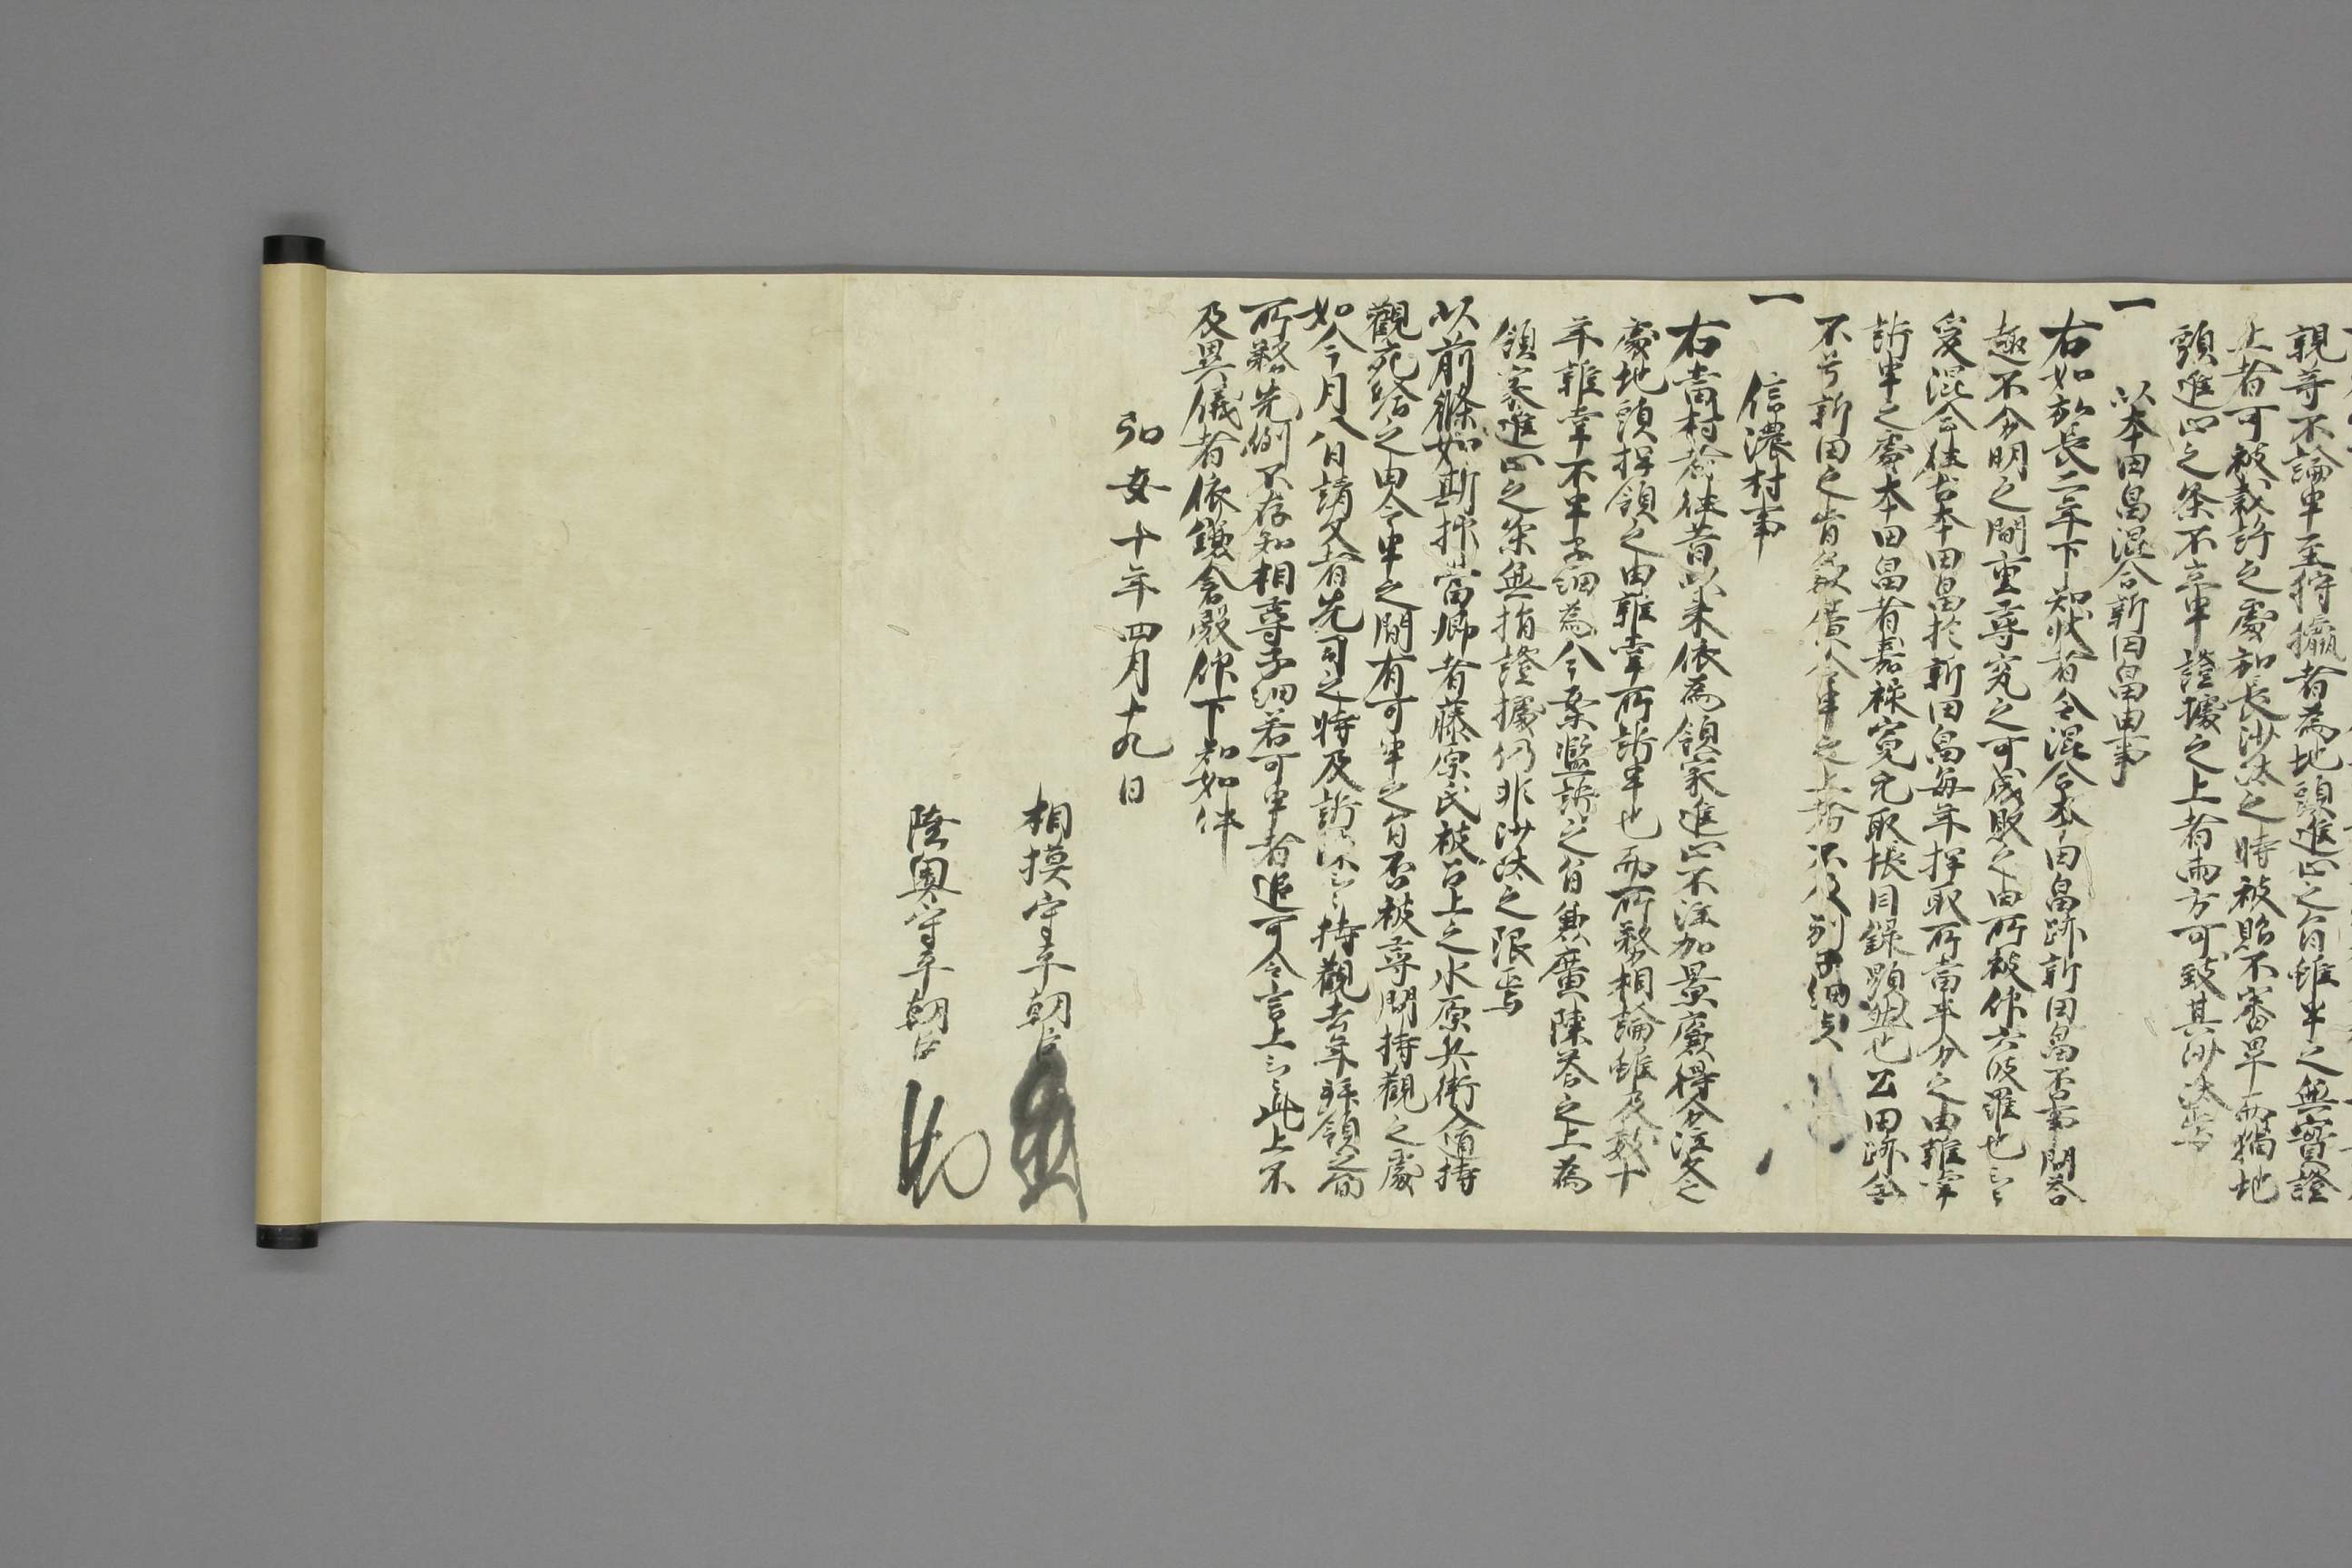 親尊不論申至狩獵者為地頭進止之旨雖申之無實證
上者可被裁許之處加長沙汰之時被貽不審早兩獨地
頭進止之条不帯申證據之上者両方可致其沙汰焉
一 以本田畠混合新田畠由事
右如於長二年下知状者令混合本田畠跡新田畠否事問答
趣不分明之間重尋究之可成敗之由所被仰六波羅也云々
爰混合往古本田畠於新田畠毎年押取所当半分之由雖幸
訴申之處本田畠者嘉禄寛元取帳目録顕然也公田跡全
不号新田之旨
一 信濃村事
右當村者往昔以来依為領家進止不注加景廉得分注文之
處地頭押領之由雖幸所訴申也両所務相論雖及数十
年雖幸不申子細為今案濫訴之旨兼廣陳荅之上為
領家進止之条無指證據仍非沙汰之限焉
以前條々如斯抑當郷者藤原氏被召上之水原兵衛入道持
觀宛給之由令申之間有可申之旨否被尋問持觀之處
如今月八日請文者先司之時及訴陳云々持觀去年拝領之間
所務先例不存知相尋子細若可申者追可令言上云々此上不
及異儀者依鎌倉殿仰下知如件
弘安十年四月十九日
相摸守平朝臣
陸奥守平朝臣